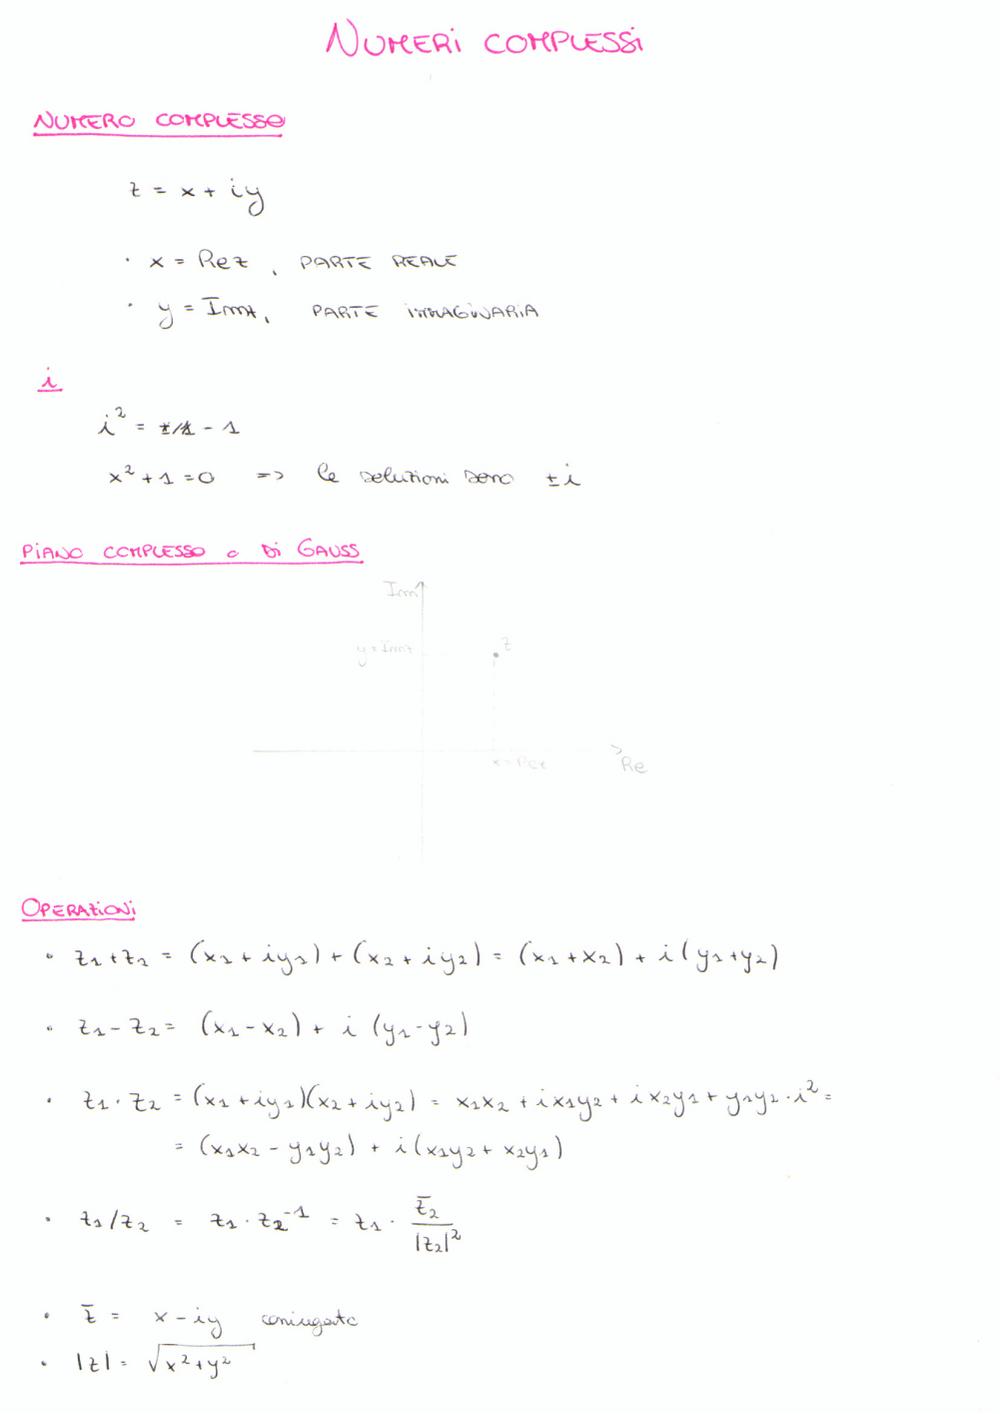 NUMERI COMPLESSI
NUMERO COMPLESSO
z = x + iy
· x = Rez, PARTE REALE
· y = Imz, PARTE IMMAGINARIA
i
i² = - 1
x² + 1 = 0 => le soluzioni sono ±i
PIANO COMPLESSO o DI GAUSS
Im
y = Imz
z
x = Rez
Re
OPERAZIONI
· z₁ + z₂ = (x₁ + iy₁) + (x₂ + iy₂) = (x₁ + x₂) + i(y₁ + y₂)
· z₁ - z₂ = (x₁ - x₂) + i (y₁ - y₂)
· z₁ · z₂ = (x₁ + iy₁)(x₂ + iy₂) = x₁x₂ + ix₁y₂ + ix₂y₁ + y₁y₂ · i² =
= (x₁x₂ - y₁y₂) + i(x₁y₂ + x₂y₁)
· z₁/z₂ = z₁ · z₂⁻¹ = z₁ · z̄₂/|z₂|²
· z̄ = x - iy coniugato
· |z| = √(x² + y²)